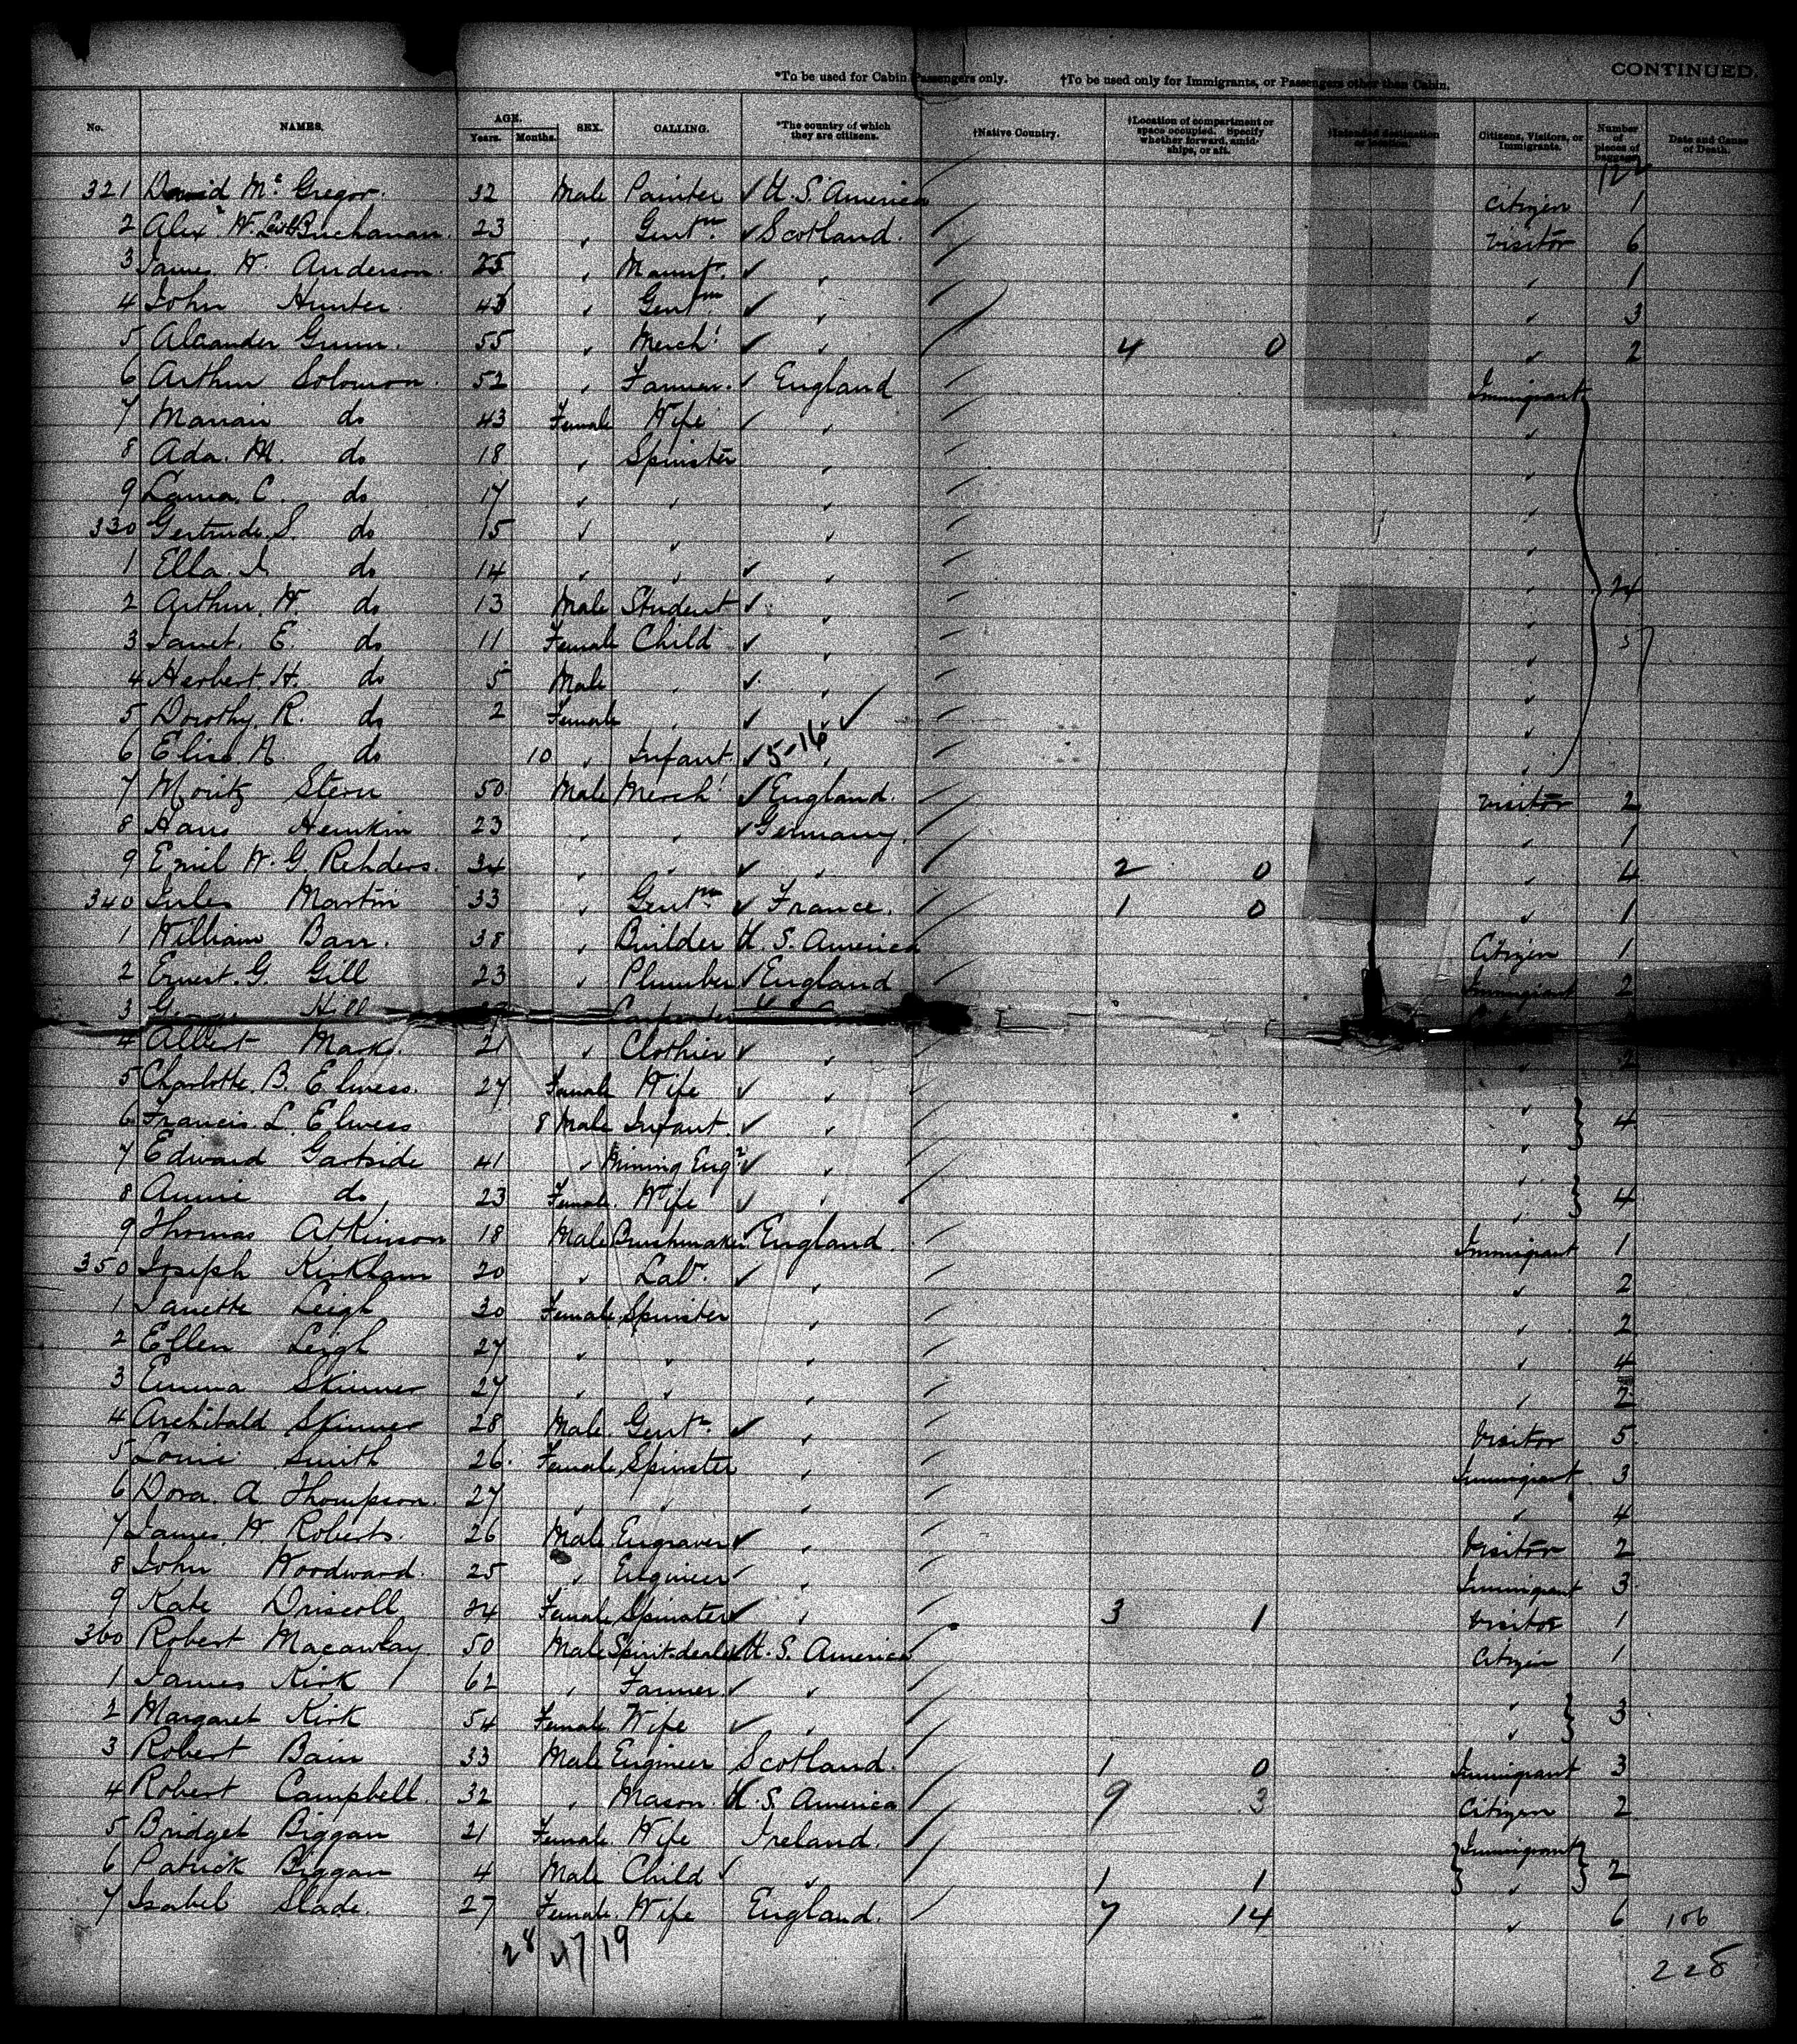 CONTINUED.
*To be used for Cabin Passengers only. †To be used only for Immigrants, or Passengers other than Cabin.
No. NAMES. AGE. Years. Months. SEX. CALLING. *The country of which they are citizens. †Native Country. †Location of compartment or space occupied. Specify whether forward, amidships, or aft. †Intended destination or location. Citizens, Visitors, or Immigrants. Number of pieces of baggage. Date and Cause of Death.
321 David Mc Gregor. 32 Male Painter ✓ U.S. America Citizen 1
2 Alexr W. Buchanan. 23 " Gentm. ✓ Scotland. Visitor 6
3 James W. Anderson. 25 " ✓ " " 1
4 John Hunter. 43 " Gentm ✓ " " 3
5 Alexander Gunn. 55 " Mercht ✓ " 4 0 " 2
6 Arthur Solomon. 52 " Farmer. ✓ England Immigrant
7 do 43 Female Wife ✓ " "
8 Ada. M. do 18 " Spinster " "
9 Laura. C. do 17 " " " "
330 Gertrude. S. do 15 " " " "
1 Ella. do 14 " " ✓ " "
2 Arthur. W. do 13 Male Student ✓ " " 24
3 Janet. E. do 11 Female Child ✓ " "
4 Herbert. H. do 5 Male " ✓ " "
5 Dorothy. R. do 2 Female " ✓ " ✓ "
6 do 10 " Infant. ✓ 5-16 " "
7 Moritz Stern 50 Male Mercht ✓ England. Visitor 2
8 Hans 23 " " ✓ Germany. " 1
9 Emil W. G. Rehders. 34 " " ✓ " 2 0 " 4
340 Jules Martin 33 " Gentm ✓ France. 1 0 " 1
1 William Barr. 38 " Builder U. S. America Citizen 1
2 Ernest. G. Gill 23 " Plumber ✓ England Immigrant 2
3 George Hill Carpenter
4 Albert Marks. 21 " Clothier ✓ " " 2
5 Charlotte. B. Elwess. 27 Female Wife ✓ " "
6 Francis. L. Elwess 8 Male Infant. ✓ " " 4
7 Edward Gartside 41 " Mining Engr ✓ " "
8 Annie do 23 Female. Wife ✓ " " 4
9 Thomas Atkinson 18 Male Brushmaker ✓ England. Immigrant 1
350 Joseph Kirkham 20 " Labr. ✓ " " 2
1 Janette Leigh 30 Female Spinster " " 2
2 Ellen Leigh 27 " " " " 4
3 Emma Skinner 27 " " " " 2
4 Archibald Skinner 28 Male. Gentn ✓ " Visitor 5
5 Louie Smith 26. Female Spinster " Immigrant 3
6 Dora. A Thompson. 27 " " " " 4
7 James. W. Roberts. 26 Male Engraver ✓ " Visitor 2
8 John Woodward. 25 " Engineer ✓ " Immigrant 3
9 Kate Driscoll 24 Female Spinster ✓ " 3 1 Visitor 1
360 Robert Macawlay. 50 Male Spirit-dealer ✓ U. S. America Citizen 1
1 James Kirk 62 " Farmer. ✓ " "
2 Margaret Kirk 54 Female. Wife ✓ " " 3
3 Robert Bain 33 Male Engineer Scotland. 1 0 Immigrant 3
4 Robert Campbell. 32 " Mason. U. S. America 9 3 Citizen 2
5 Bridget Biggan 21 Female. Wife Ireland. Immigrant
6 Patrick Biggan 4 Male Child ✓ " 1 1 " 2
7 Isabel Slade. 27 Female. Wife England. 7 14 " 6 106
28 47 19
228